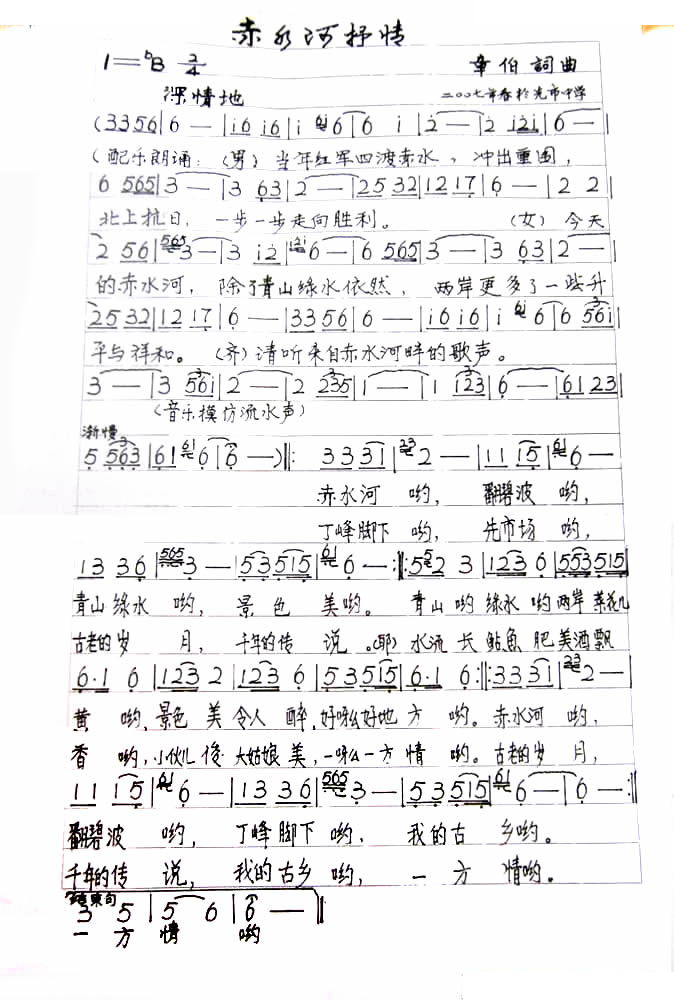 赤水河抒情
1=bB 2/4 章伯詞曲
深情地 二〇〇七年春於先市中学
(3356|6 —|i6i6|i 6i6|6 i|2 —|2 i2i|6 —|
(配乐朗诵:(男)当年红军四渡赤水,冲出重围,
6 565|3 —|3 63|2 —|2532|1217|6 —|2 2|
北上抗日,一步一步走向胜利。 (女)今天
2 56|5653 —|3 i2|12i6 —|6 565|3 —|3 63|2 —|
的赤水河,除了青山绿水依然,两岸更多了一些升
2532|1217|6 —|3356|6 —|i6i6|i 6i6|6 56i|
平与祥和。(齐)请听来自赤水河畔的歌声。
3 —|3 56i|2 —|2 235|1 —|1 123|6 —|6123|
(音乐模仿流水声)
渐慢
5 563|61 616|6 —)‖: 3331|232 —|1115|616 —|
赤水河 哟, 翻碧波 哟,
丁峰脚下 哟, 先市场 哟,
13 36|5653 —|53515|616 —:‖:552 3|123 6|553515|
青山绿水 哟, 景色 美哟。 青山哟绿水哟两岸菜花儿
古老的岁 月, 千年的传 说。(耶)水流长鲇鱼肥美酒飘
6·1 6|123 2|123 6|53515|6·1 6:‖:3331|232 —|
黄 哟,景色美令人醉,好呀么好地方 哟。赤水河 哟,
香 哟,小伙儿俊大姑娘美,一呀么一方情 哟。古老的岁 月,
11 15|616 —|13 36|5653 —|53515|616 —|6 —:‖
翻碧波 哟, 丁峰脚下 哟, 我的古 乡哟。
千年的传 说, 我的古乡 哟, 一 方 情哟。
结束句
3 5|5 6|6 —‖
一 方 情 哟